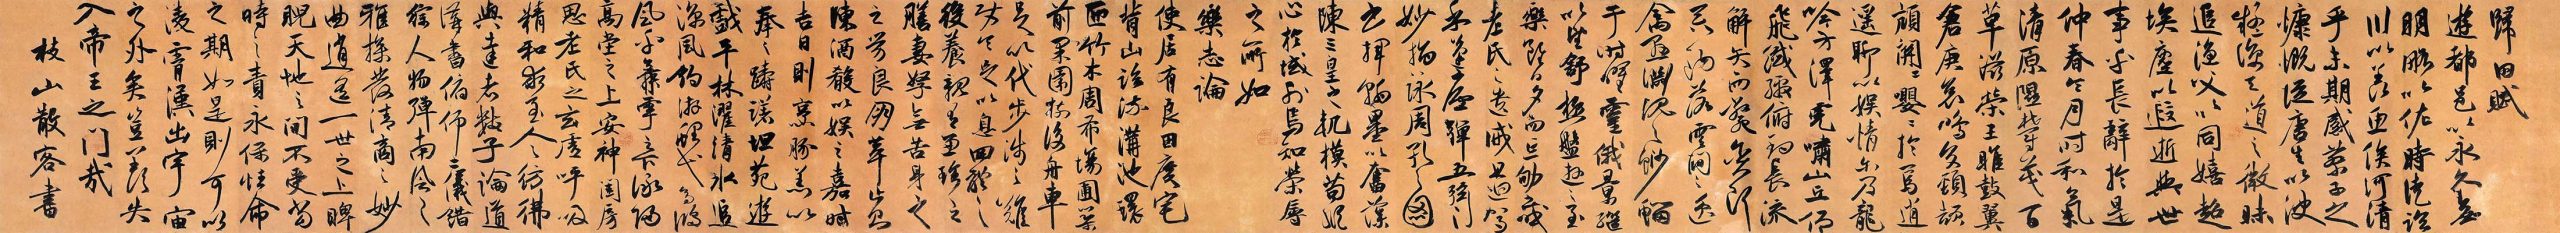 歸田賦
遊都邑以永久無
明略以佐時徒臨
川以羨魚俟河清
乎未期感蔡子之
慷慨從唐生以決
疑諒天道之微昧
追漁父以同嬉超
埃塵以遐逝與世
事乎長辭於是
仲春令月時和氣
清原隰鬱茂百
草滋榮王雎鼓翼
倉庚哀鳴交頸頡
頏關〻嚶〻於焉逍
遙聊以娛情爾乃龍
吟方澤虎嘯山丘仰
飛纖繳俯釣長流
觸矢而斃貪餌
吞鉤落雲間之逸
禽懸淵沉之魦鰡
于時曜靈俄景繼
以望舒極盤遊之至
樂雖日夕而忘劬感
老氏之遺誡且迴駕
乎蓬廬彈五弦之
妙指詠周孔之圖
書揮翰墨以奮藻
陳三皇之軌模苟縱
心於域外焉知榮辱
之所如
樂志論
使居有良田廣宅
背山臨流溝池環
匝竹木周布場圃築
前果園樹後舟車
足以代步涉之難
使令足以息四體之
役養親有兼珍之
膳妻孥無苦身之
之勞良朋萃止則
陳酒殽以娛之嘉時
吉日則烹豚羔以
奉之躊躇畦苑遊
戲平林濯清水追
涼風釣游鯉弋高鴻
風乎舞雩詠歸
高堂之上安神閨房
思老氏之玄虛呼吸
精和求至人之彷彿
與達者數子論道
講書俯仰二儀錯
綜人物彈南風之
雅操發清商之妙
曲逍遙一世之上睥
睨天地之間不受當
時之責永保性命
之期如是則可以
凌霄漢出宇宙
之外矣豈羨夫
入帝王之門哉
枝山散客書